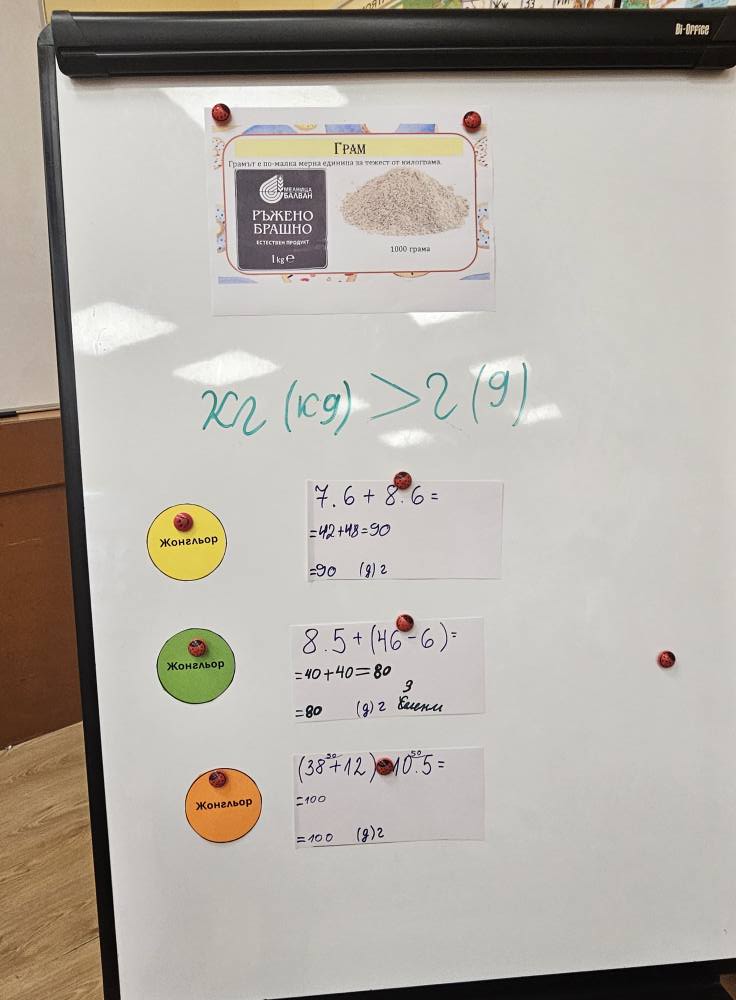 Bi-Office
ГРАМ
Грамът е по-малка мерна единица за тежест от килограма.
МЕЛНИЦА
БАЛВАН
РЪЖЕНО
БРАШНО
ЕСТЕСТВЕН ПРОДУКТ
1 kg e
1000 грама
кг (кg) > г (g)
Жонгльор
7.6 + 8.6 =
=42+48=90
=90 (g) г
Жонгльор
8.5 + (46-6) =
=40+40=80
=80 (g) г
Жонгльор
30 50
(38+12) 10.5 =
=100
=100 (g) г